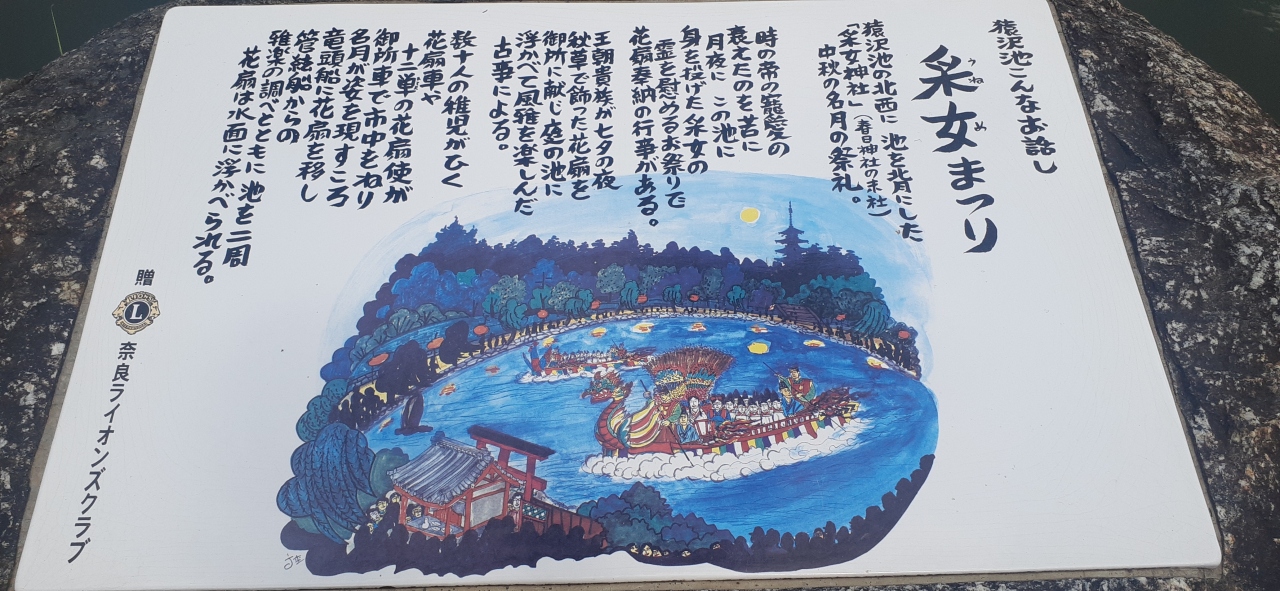 猿沢池こんなお話し
采女まつり
うねめ
猿沢池の北西に 池を背にした
「采女神社」(春日神社の末社)
中秋の名月の祭礼。
時の帝の寵愛の
衰えたのを苦に
月夜に この池に
身を投げた采女の
霊を慰めるお祭りで
花扇奉納の行事がある。
王朝貴族が七夕の夜
秋草で飾った花扇を
御所に献じ庭の池に
浮かべて風雅を楽しんだ
古事による。
数十人の稚児がひく
花扇車や
十二単の花扇使が
御所車で市中をねり
名月が姿を現すころ
竜頭船に花扇を移し
管絃船からの
雅楽の調べとともに池を二周
花扇は水面に浮かべられる。
贈
L
奈良ライオンズクラブ